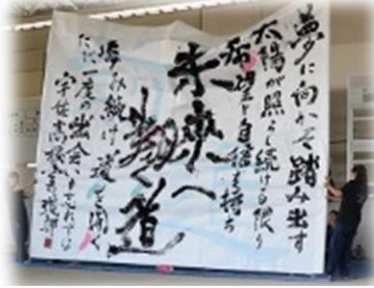 夢に向かって踏み出す
太陽が照らし続ける限り
希望と自信を持ち
未来へ
繋ぐ道
歩み続け 道を開く
ただ一度の出会い
宇佐高校書道部